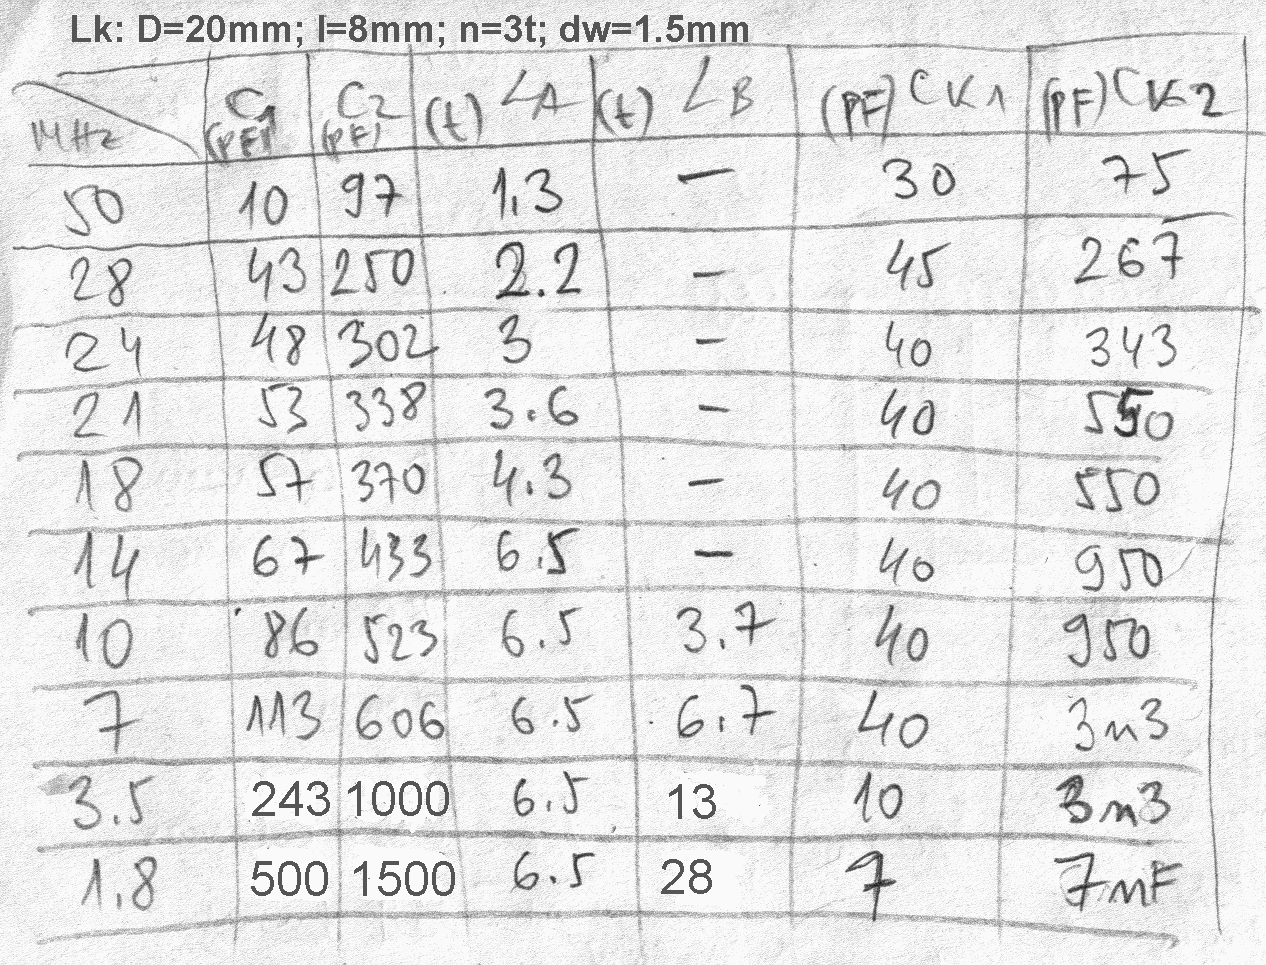 Lk: D=20mm; l=8mm; n=3t; dw=1.5mm
MHz C1 (PF) C2 (PF) (t) LA (t) LB (PF) CK1 (PF) CK2
50 10 97 1,3 — 30 75
28 43 250 2.2 — 45 267
24 48 302 3 — 40 343
21 53 338 3.6 — 40 550
18 57 370 4.3 — 40 550
14 67 433 6.5 — 40 950
10 86 523 6.5 3.7 40 950
7 113 606 6.5 6.7 40 3n3
3.5 243 1000 6.5 13 10 3n3
1.8 500 1500 6.5 28 7 7nF